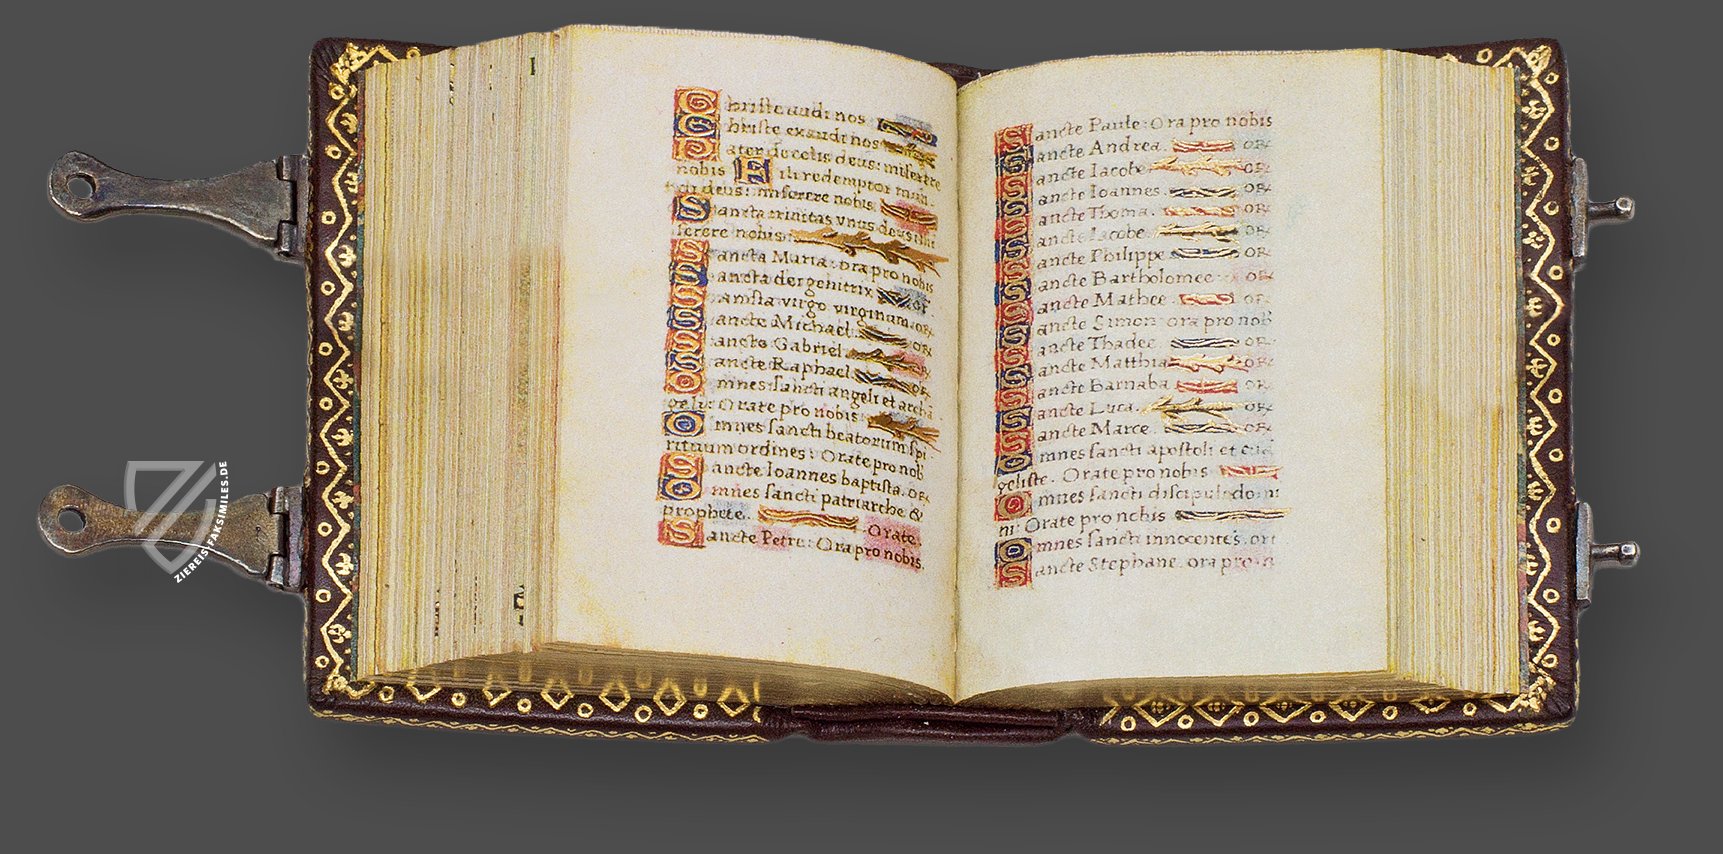 Christe audi nos
Christe exaudi nos
Pater de celis deus: miserere
nobis Fili redemptor mun
di deus: miserere nobis
Sancta trinitas vnus deus mi
serere nobis
Sancta Maria: ora pro nobis
Sancta dei genitrix or
Sancta virgo virginum. or
Sancte Michael: or
Sancte Gabriel or
Sancte Raphael or
Omnes sancti angeli et archa
geli: Orate pro nobis
Omnes sancti beatorum spi
rituum ordines: Orate pro nob
Sancte Ioannes baptista. or
Omnes sancti patriarche &
prophete. Orate.
Sancte Petre: Ora pro nobis.
Sancte Paule: Ora pro nobis
Sancte Andrea. or
Sancte Iacobe or
Sancte Ioannes. or
Sancte Thoma. or
Sancte Iacobe or
Sancte Philippe or
Sancte Bartholomee or
Sancte Mathee or
Sancte Simon: ora pro nob
Sancte Thadee or
Sancte Matthia or
Sancte Barnaba or
Sancte Luca. or
Sancte Marce. or
Omnes sancti apostoli et eua
geliste. Orate pro nobis
Omnes sancti discipuli domi
ni: Orate pro nobis
Omnes sancti innocentes. ort
Sancte Stephane. ora pro n
ZIEREIS-FAKSIMILES.DE